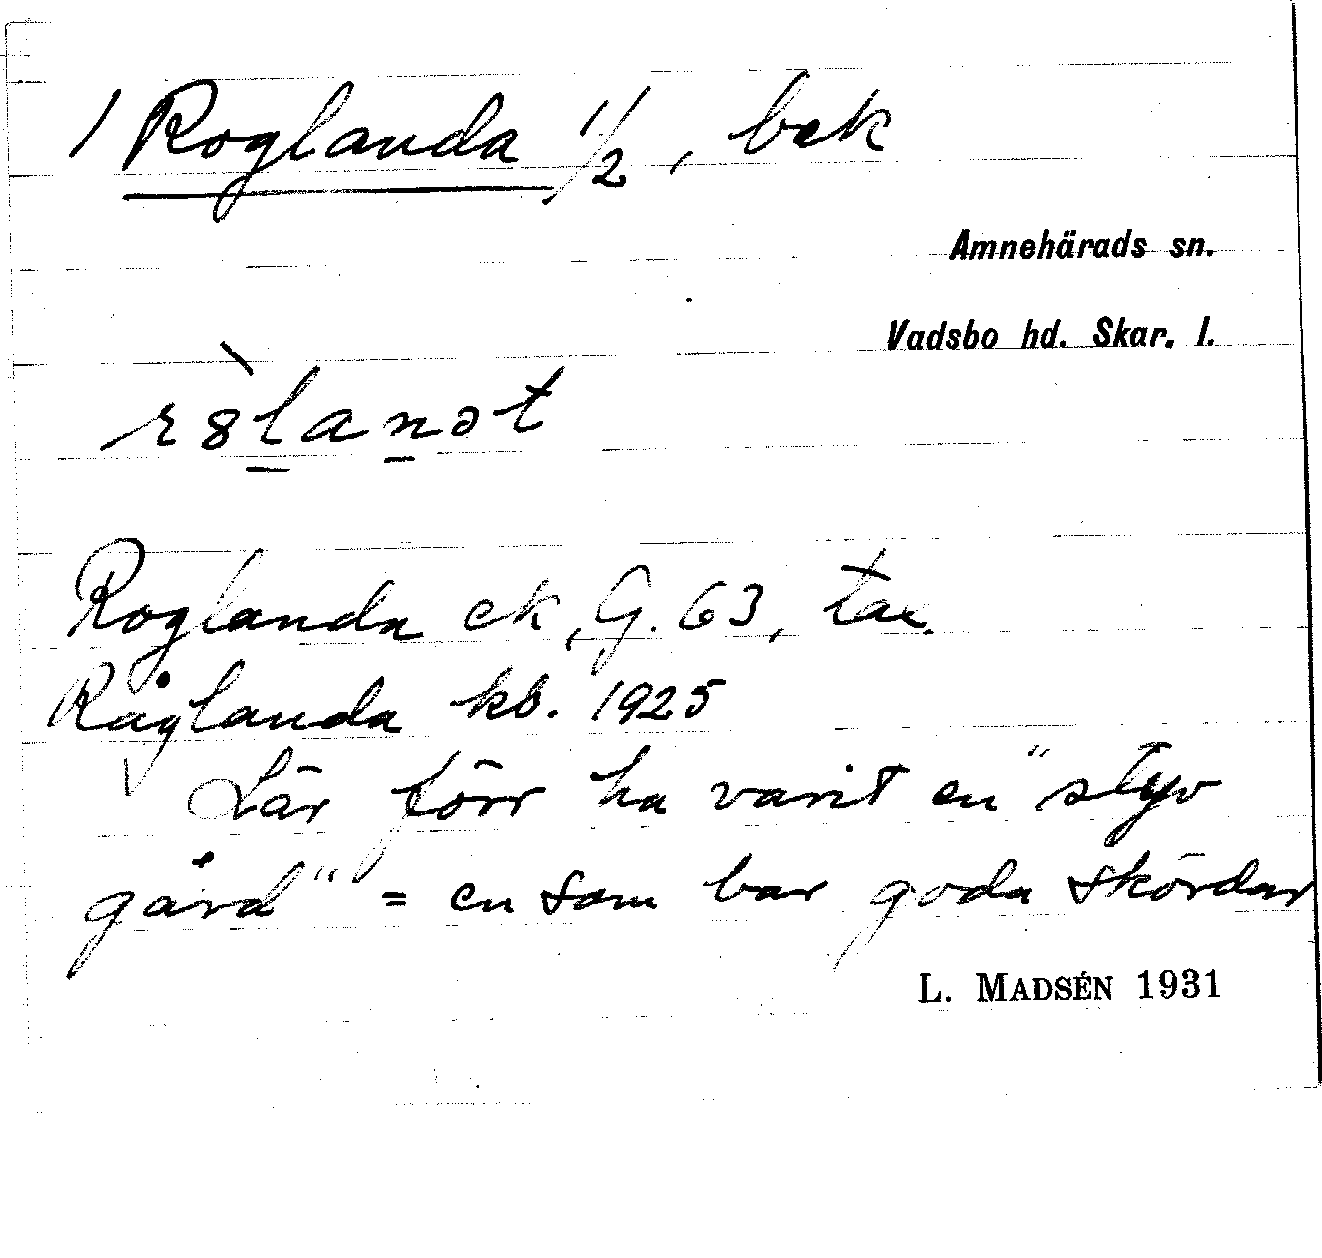 / Roglanda 1/2, bek
Amnehärads sn.
Vadsbo hd. Skar. l.
Roglanda ek, G. 63, tax.
Råglanda kb. 1925
Lär förr ha varit en "styv
gård" = en som bar goda skördar
L. MADSÉN 1931